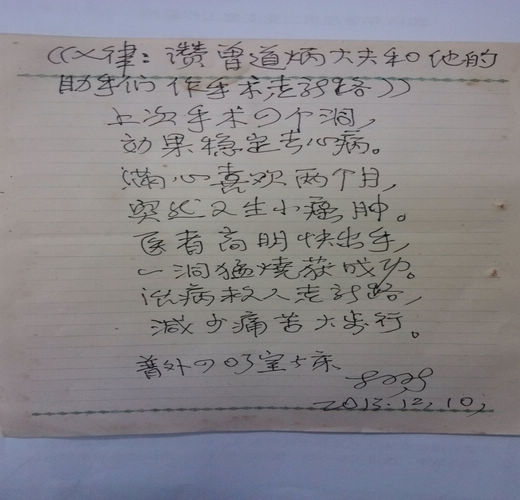 《《七律：讚曾道炳大夫和他的
助手们作手术走新路》》
上次手术四个洞，
効果稳定去心病。
滿心喜欢两个月，
又生小瘤肿。
医者高明快出手，
一洞猛燒获成功。
治病救人走新路，
減少痛苦大步行。
普外四03室七床
2013.12.10，